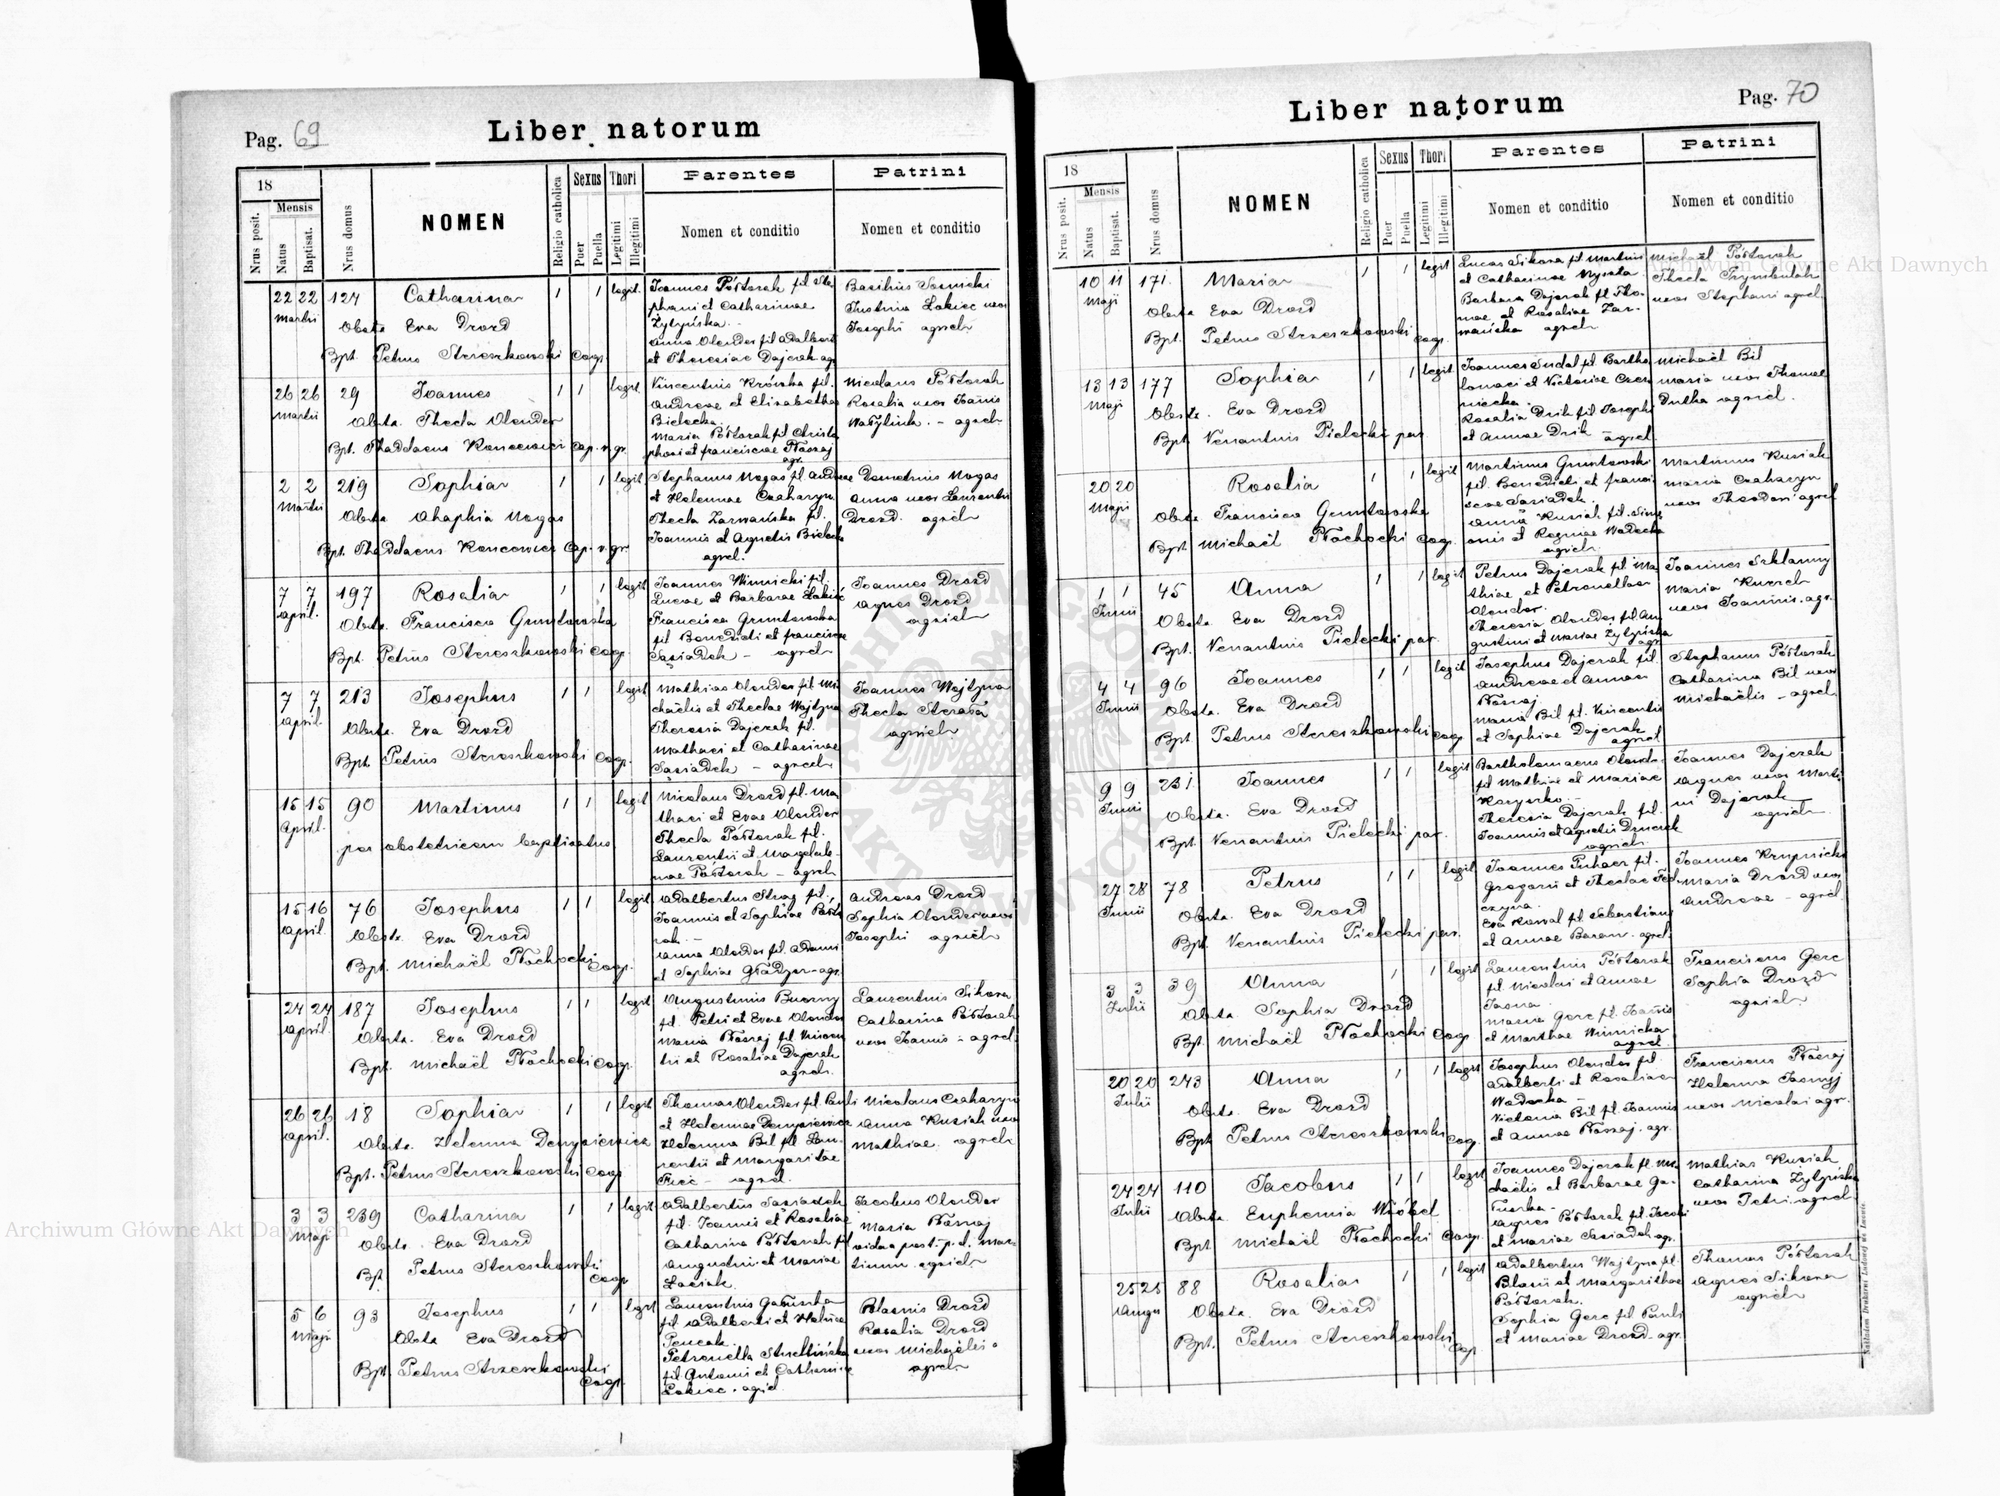 Pag. 69
Liber natorum
18
Mensis
Nrus posit.
Natus
Baptisat.
Nrus domus
NOMEN
Religio catholica
Sexus
Puer
Puella
Thori
Legitimi
Illegitimi
Parentes
Nomen et conditio
Patrini
Nomen et conditio
22 22 124 Catharina 1 1 legit.
Martii
Obste Eva Drozd
Bpt. Petrus Strzeszkowski Coop.
Joannes Półtorak fil. Ste
phani et Catharinae
Żytyńska
Anna Olender fil. Adalberti
et Theresiae Dajczak agr.
Basilius
Justina Łakiec uxor
Josephi agricolae
26 26 29 Joannes 1 1 legit
Martii
Obste. Thecla Olender
Bpt. Thaddaeus
Vincentius Krówka fil.
Andreae et Elisabethae
Bielecka
Maria Półtorak fil. Christo
phori et Franciscae Ptaszaj
agr.
Nicolaus Półtorak
Rosalia uxor Joannis
2 2 219 Sophia 1 1 legit
Martii
Obste Ahaphia Nogas
Stephanus Nogas fil. Andreae
et Helenae Czaharyn
Thecla Zarwańska fil.
Joannis et Agnetis
agricol.
Demetrius Nogas
Anna uxor Laurentii
Drozd. agricolae
7 7 197 Rosalia 1 1 legit
April.
Obste. Francisca Gruntowska
Bpt. Petrus Strzeszkowski Coop.
Joannes Winnicki fil.
Lucae et Barbarae Łakiec
Francisca Gruntowska
fil Benedicti et Franciscae
Sasiadek – agricolae
Joannes Drozd
Agnes Drozd
agricolae
7 7 213 Josephus 1 1 legit
April.
Obste. Eva Drozd
Bpt. Petrus Strzeszkowski Coop.
Mathias Olender fil. Mi
chaelis et Theclae Wojtyna
Theresia Dajczak fil.
Mathaei et Catharinae
Sąsiadek – agricolae
Joannes Wojtyna
Thecla
agricolae
15 15 90 Martinus 1 1 legit
April.
per obstetricem baptisatus
Nicolaus Drozd fil. Ma
thaei et Evae Olender
Thecla Półtorak fil.
Laurentii et Magdale
nae Półtorak – agricolae
15 16 76 Josephus 1 1 legit
April.
Obste. Eva Drozd
Bpt. Michaël Płachocki Coop.
Adalbertus Stray fil.
Joannis et Sophiae Półto
rak. –
Anna Olender fil. Adami
et Sophiae – agr.
Andreas Drozd
Sophia Olender uxor
Josephi agricolae
24 24 187 Josephus 1 1 legit
April.
Obste. Eva Drozd
Bpt. Michaël Płachocki Coop.
Augustinus
fil. Petri et Evae Olender
Maria Ptaszaj fil. Vincen
tii et Rosaliae Dajczak
agricolae.
Laurentius Sikora
Catharina Półtorak
uxor Joannis – agricol.
26 26 18 Sophia 1 1 legit
April.
Obste. Helena Denysiewicz
Bpt. Petrus Strzeszkowski Coop.
Thomas Olender fil. Pauli
et Helenae Denysiewicz
Helena Bil fil. Lau
rentii et Margaritae
– agricol.
Nicolaus Czaharyn
Anna Kusiak uxor
Mathiae. agricolae
3 3 239 Catharina 1 1 legit
Maji
Obste. Eva Drozd
Bpt Petrus Strzeszkowski
Coop
Adalbertus Sasiadek
fil. Joannis et Rosaliae
Catharina Półtorak fil.
Augustini et Mariae
Jacobus Olender
Maria Ptaszaj
vidua post. p. d. Mar
tinum. agricolae
5 6 93 Josephus 1 1 legit
Maji
Obste Eva Drozd
Bpt Petrus Strzeszkowski
Coop.
Laurentius Gabuszka
fil. Adalberti et
Petronella
fil. Antonii et Catharinae
Łakiec. agricol
Blasius Drozd
Rosalia Drozd
uxor Michaëlis
agricolae
Liber natorum
Pag. 70
18
Mensis
Nrus posit.
Natus
Baptisat.
Nrus domus
NOMEN
Religio catholica
Sexus
Puer
Puella
Thori
Legitimi
Illegitimi
Parentes
Nomen et conditio
Patrini
Nomen et conditio
10 11 171. Maria 1 1 legit
Maji
Obste Eva Drozd
Bpt. Petrus Strzeszkowski Coop.
Lucas Sikora fil Martini
et Catharinae
Barbara Dajczak fil Tho
mae et Rosaliae Zar
wańska agricolae
Michaël Półtorak
Thecla
uxor Stephani agricol.
13 13 177 Sophia 1 1 legit
Maji
Obste. Eva Drozd
Bpt. Venantius Pielecki par.
Joannes Dudał fil Bartho
lomaei et Victoriae Czer
niecka.
Rosalia Dzik fil Josephi
et Annae Dzik – agricol.
Michaël Bil
Maria uxor Thomae
Dutka agricol.
20 20 Rosalia 1 1 legit
Maji
Obste Francisca Gruntowska
Bpt. Michaël Płachocki Coop.
Martinus Gruntowski
fil. Benedicti et Franci
scae Sasiadek.
Anna Kusiak fil. Sim
onis et Reginae Wadecka
agricolae.
Martinus Kusiak
Maria Czaharyn
uxor Theodori agricol.
1 1 45 Anna 1 1 legit
Junii
Obste. Eva Drozd
Bpt. Venantius Pielecki par.
Petrus Dajczak fil Ma
thiae et Petronellae
Olender.
Theresia Olender fil. Au
gustini et Mariae Żytyńska
agr.
Joannes Szklanny
Maria
uxor Joannis. agr.
4 4 96 Joannes 1 1 legit
Junii
Obste. Eva Drozd
Bpt Petrus Strzeszkowski Coop
Josephus Dajczak fil.
Andreae et Annae
Ptaszaj
Maria Bil fil. Vincentii
et Sophiae Dajczak
agricol
Stephanus Półtorak
Catharina Bil uxor
Michaëlis – agricol.
9 9 231. Joannes 1 1 legit
Junii
Obste. Eva Drozd
Bpt. Venantius Pielecki par.
Bartholomaeus Olender
fil Mathiae et Mariae
Theresia Dajczak fil.
Joannis et Agnetis
agricolae.
Joannes Dajczak
Agnes uxor Marti
ni Dajczak
agricolae
27 28 78 Petrus 1 1 legit
Junii
Obste. Eva Drozd
Bpt. Venantius Pielecki par.
Joannes Puhacz fil.
Gregorii et Theclae Fed
czyna.
Eva Kowal fil Sebastiani
et Annae Baran. agricol.
Joannes Krupnicki
Maria Drozd uxor
Andreae – agricol.
3 3 39 Anna 1 1 legit
Julii
Obste. Sophia Drozd
Bpt. Michaël Płachocki Coop
Laurentius Półtorak
fil. Nicolai et Annae
Jasna.
Maria Gerc fil. Joannis
et Marthae Winnicka
agricol
Franciscus Gerc
Sophia Drozd
agricolae
20 20 243 Anna 1 1 legit
Julii
Obste. Eva Drozd
Bpt Petrus Strzeszkowski Coop.
Josephus Olender fil.
Adalberti et Rosaliae
Wadecka –
Victoria Bil fil. Joannis
et Annae Ptaszaj. agr.
Franciscus Ptaszaj
Helena Jasnyj
uxor Nicolai agr.
24 24 110 Jacobus 1 1 legit
Julii
Obste Euphemia Wróbel
Bpt Michaël Płachocki Coop.
Joannes Dajczak fil. Mi
chaëlis et Barbarae Ga
Agnes Półtorak fil. Jacobi
et Mariae Sasiadek agr.
Mathias Kusiak
Catharina Żytyńska
uxor Petri. agricol
25 25 88 Rosalia 1 1 legit
Augu
Obste. Eva Drozd
Bpt. Petrus Strzeszkowski
Coop.
Adalbertus Wojtyna fil.
Blasii et Margarithae
Półtorak.
Sophia Gerc fil Pauli
et Mariae Drozd. agr.
Thomas Półtorak
Agnes Sikora
agricolae
Nakładem Drukarni Ludowej we Lwowie.
Archiwum Główne Akt Dawnych
Archiwum Główne Akt Dawnych
ARCHIWUM GŁÓWNE AKT DAWNYCH